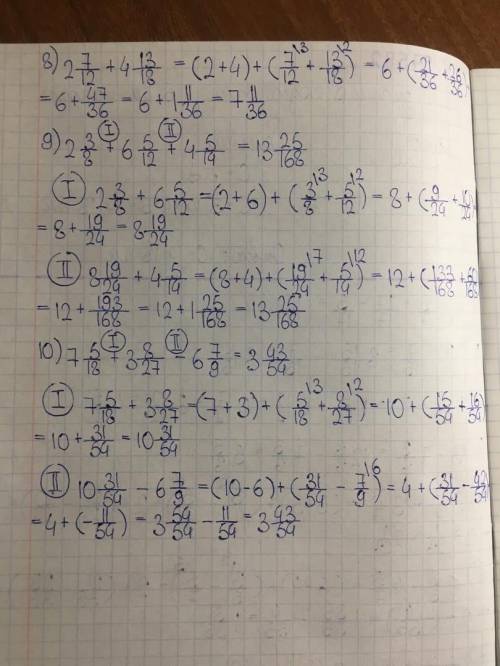 8) 2 7/12 + 4 13/18 = (2+4) + (7/12 \3 + 13/18 \2) = 6 + (21/36 + 26/36)
= 6 + 47/36 = 6 + 1 11/36 = 7 11/36
9) 2 3/8 +(I) 6 5/12 +(II) 4 5/14 = 13 25/168
(I) 2 3/8 + 6 5/12 = (2+6) + (3/8 \3 + 5/12 \2) = 8 + (9/24 + 10/24)
= 8 + 19/24 = 8 19/24
(II) 8 19/24 + 4 5/14 = (8+4) + (19/24 \7 + 5/14 \12) = 12 + (133/168 + 60/168
= 12 + 193/168 = 12 + 1 25/168 = 13 25/168
10) 7 5/18 +(I) 3 8/27 -(II) 6 7/9 = 3 43/54
(I) 7 5/18 + 3 8/27 = (7+3) + (5/18 \3 + 8/27 \2) = 10 + (15/54 + 16/54)
= 10 + 31/54 = 10 31/54
(II) 10 31/54 - 6 7/9 = (10-6) + (31/54 - 7/9 \6) = 4 + (31/54 - 42/54)
= 4 + (- 11/54) = 3 54/54 - 11/54 = 3 43/54